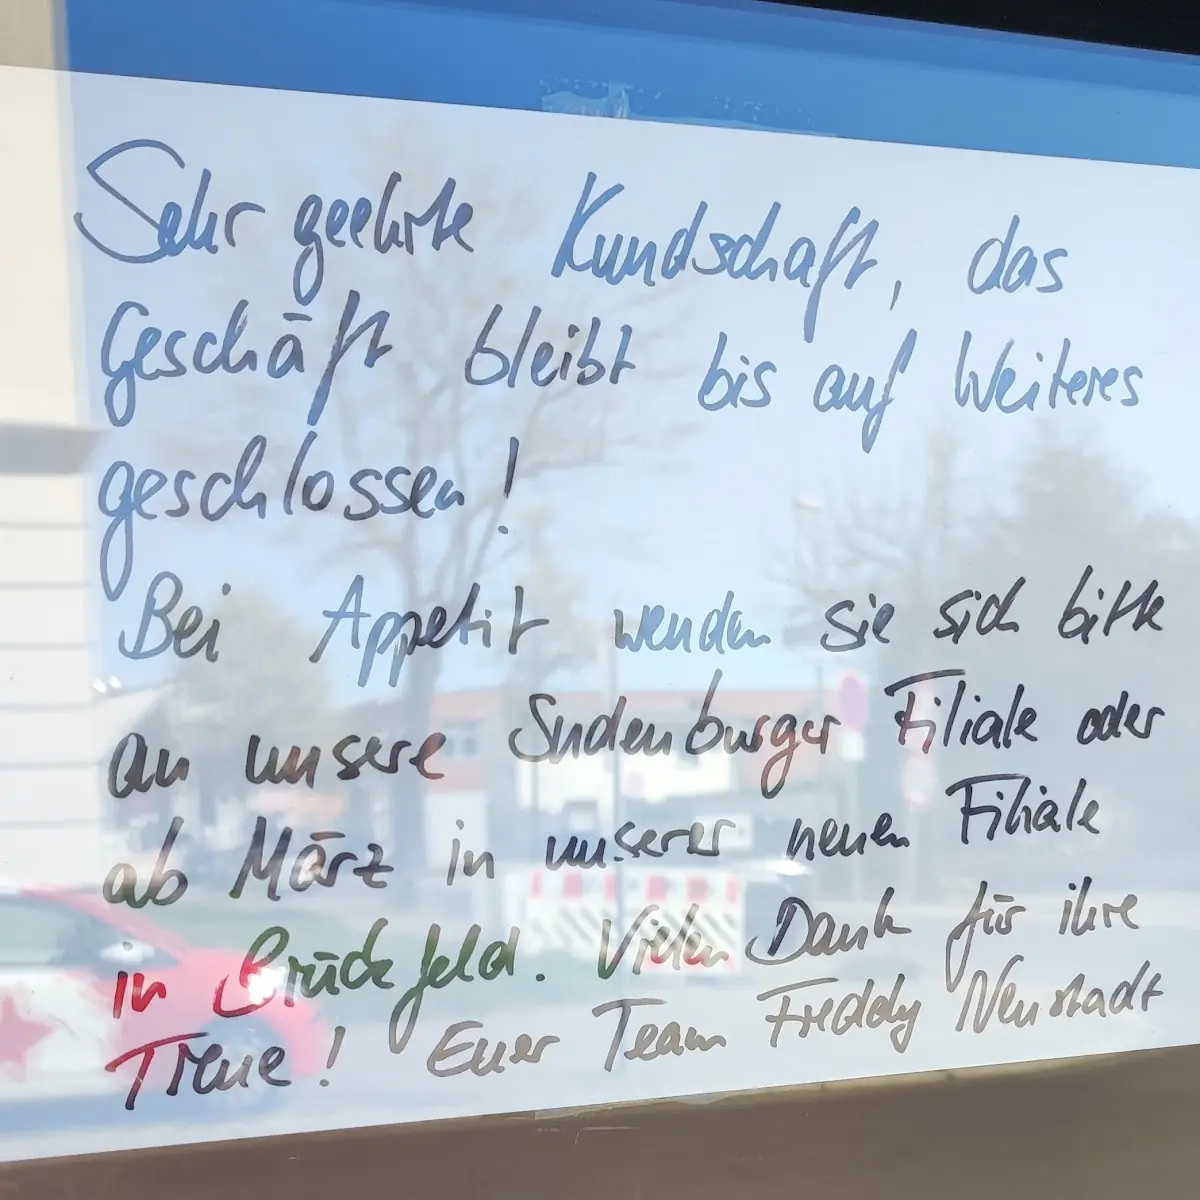 Sehr geehrte Kundschaft, das
Geschäft bleibt bis auf Weiteres
geschlossen!
Bei Appetit wenden sie sich bitte
an unsere Sudenburger Filiale oder
ab März in unserer neuen Filiale
in Brückfeld. Vielen Dank für ihre
Treue! Euer Team Freddy Neustadt